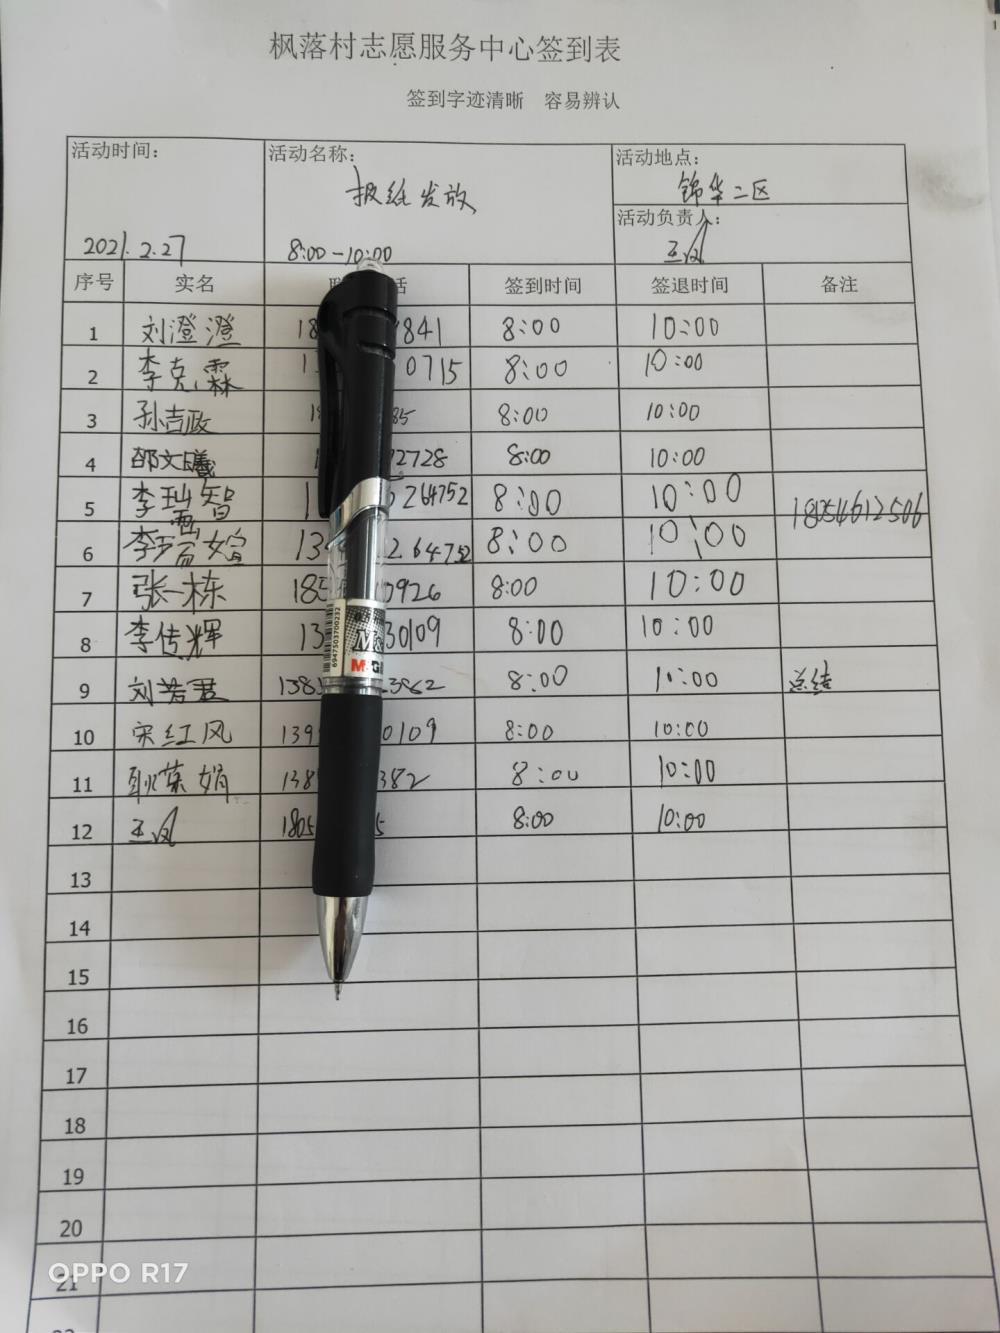 枫落村志愿服务中心签到表
签到字迹清晰 容易辨认
活动时间: 活动名称: 活动地点:
报纸发放 锦华二区
活动负责人:
2021.2.27 8:00-10:00 王凤
序号 实名 联 话 签到时间 签退时间 备注
1 刘澄澄 18 841 8:00 10:00
2 李克霖 1 0715 8:00 10:00
3 孙吉政 1 85 8:00 10:00
4 邵文曦 1 2728 8:00 10:00
5 李瑞智 1 264752 8:00 10:00 18054612506
6 李 萱 13 264752 8:00 10:00
7 张一栋 185 0926 8:00 10:00
8 李传辉 13 30109 8:00 10:00
9 刘若君 1383 3862 8:00 10:00 总结
10 宋红风 139 0109 8:00 10:00
11 耿荣娟 138 382 8:00 10:00
12 王凤 1805 5 8:00 10:00
13
14
15
16
17
18
19
20
21
6947503700232
M&G
OPPO R17